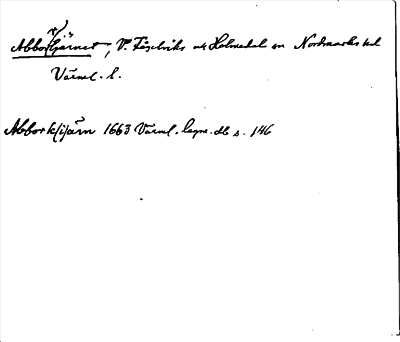 Abbo(r)tjärnet, V. Fågelviks och Holmedal sn Nordmarks hd
Värml. l.
Abbork(i)ärn 1663 Värml. lagm. db s. 146